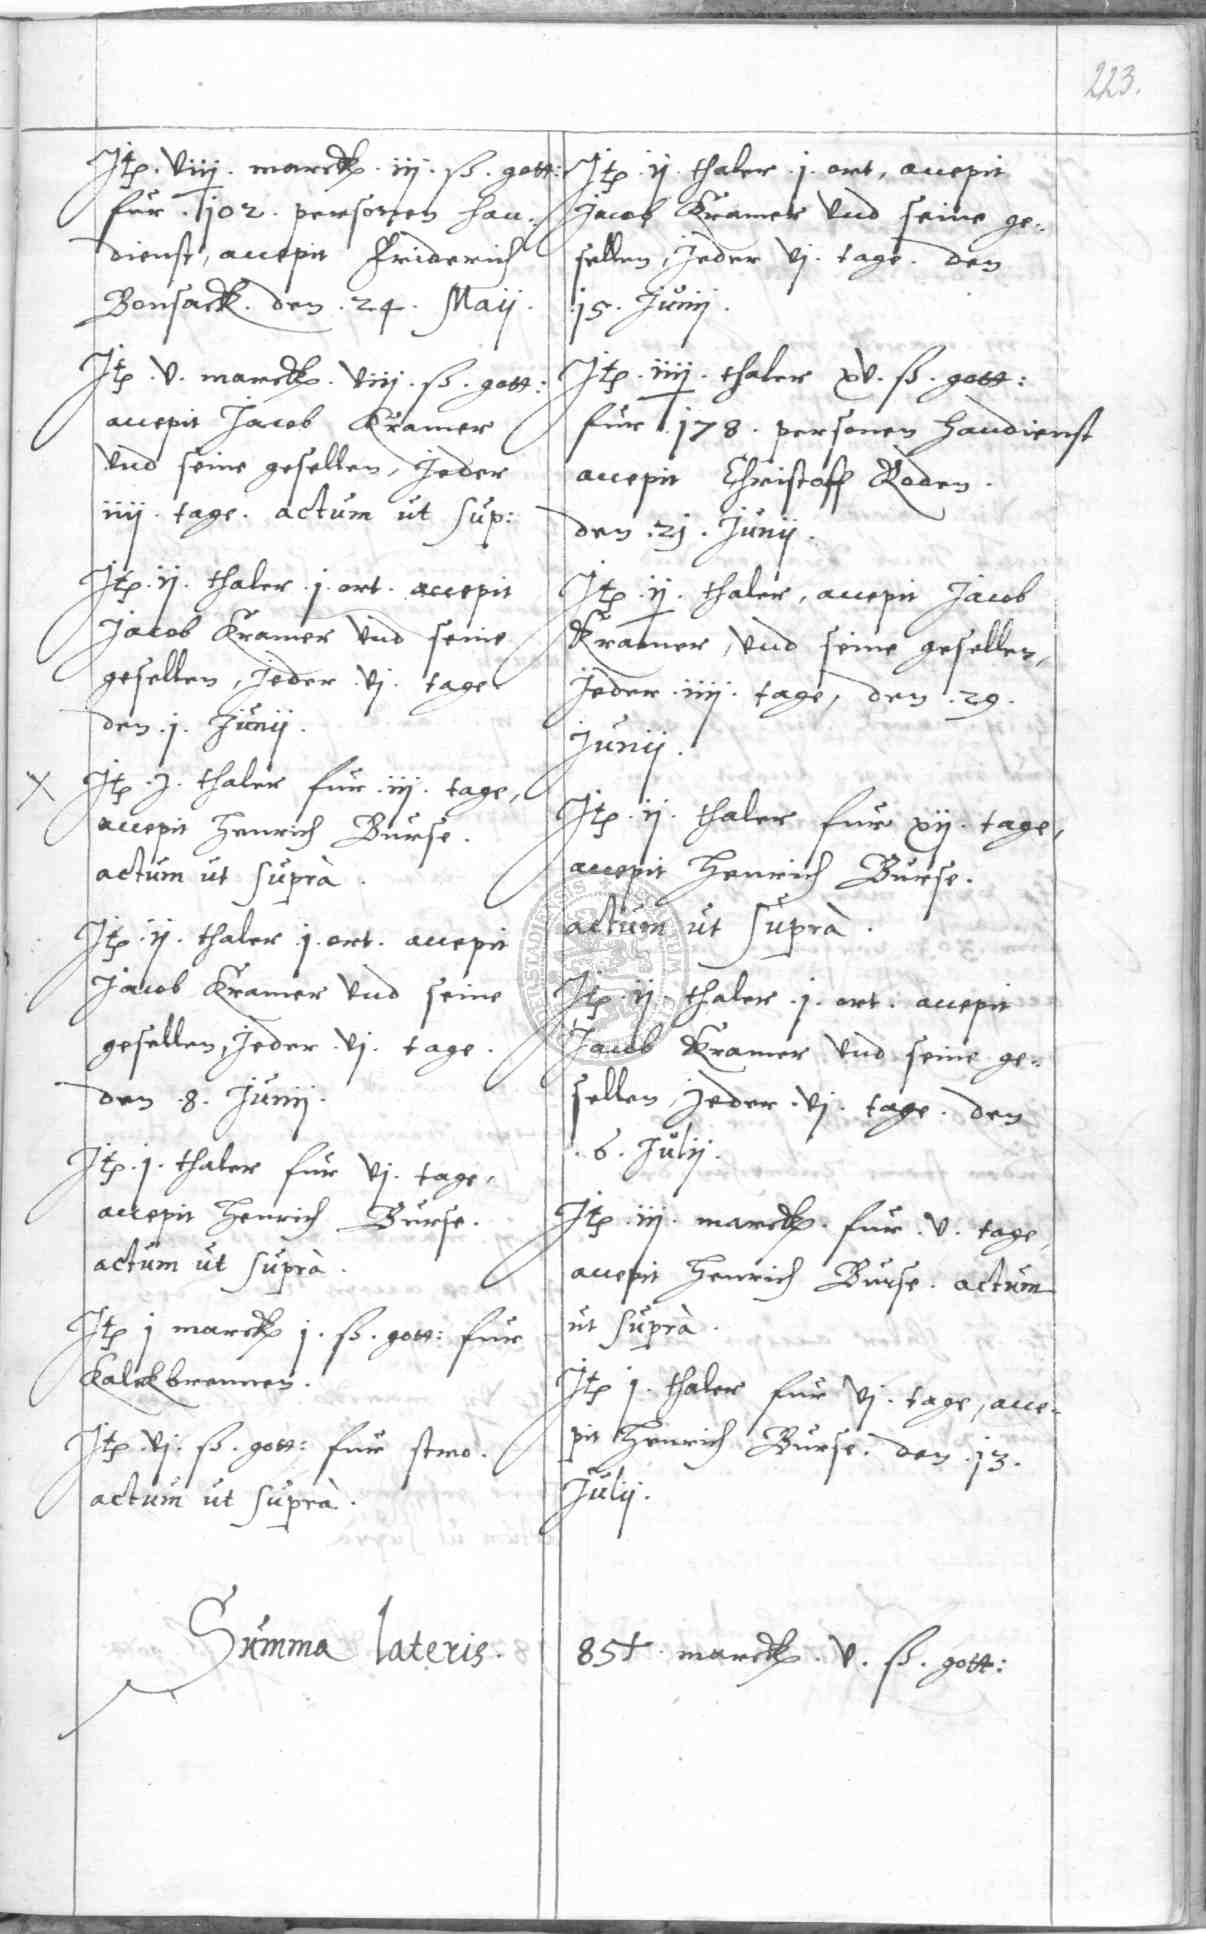 223.
Jtē. viij. marck. iij. ß. gott:
fur. 102. personen han-
dienst, accepit Friderich
Bonsack. den .24. Maij.
Jtē .v. marck. viij. ß. gott:
accepit Jacob Kramer
vnd seine gesellen, Jeder
iiij. tage. actum ut sup:
Jtē .ij. thaler .j. ort. accepit
Jacob Kramer vnd seine
gesellen, Jeder .vj. tage
den .j. Junij.
X Jtē .J. thaler fur .iij. tage,
accepit Henrich Burse.
actum ut suprà.
Jtē .ij. thaler .j. ort. accepit
Jacob Kramer vnd seine
gesellen, Jeder .vj. tage.
den .8. Junij.
Jtē .j. thaler fur vj. tage,
accepit Henrich Burse.
actum ut suprà.
Jtē j marck j. ß. gott: fur
Kalckbrennen.
Jtē vj. ß. gott: fur stro.
actum ut suprà.
Jtē .ij. thaler .j. ort, accepit
Jacob Kramer vnd seine ge-
sellen, Jeder vj. tage. den
15. Junij.
Jtē .iiij. thaler xv. ß. gott:
fur .178. personen handienst
accepit Christoff Roden.
den .2j. Junij.
Jtē .ij. thaler, accepit Jacob
Kramer, vnd seine gesellen,
Jeder .iiij. tage, den .29.
Junij.
Jtē .ij. thaler fur xij. tage,
accepit Henrich Burse.
actum ut suprà.
Jtē .ij. thaler .j. ort. accepit
Jacob Kramer vnd seine ge-
sellen, Jeder .vj. tage. den
.6. Julij.
Jtē .iij. marck. fur .v. tage,
accepit Henrich Burse. actum
ut suprà.
Jtē j. thaler fur vj. tage, acce-
pit Henrich Burse. den .13.
Julij.
Summa lateris. 85+ marck. v. ß. gott: